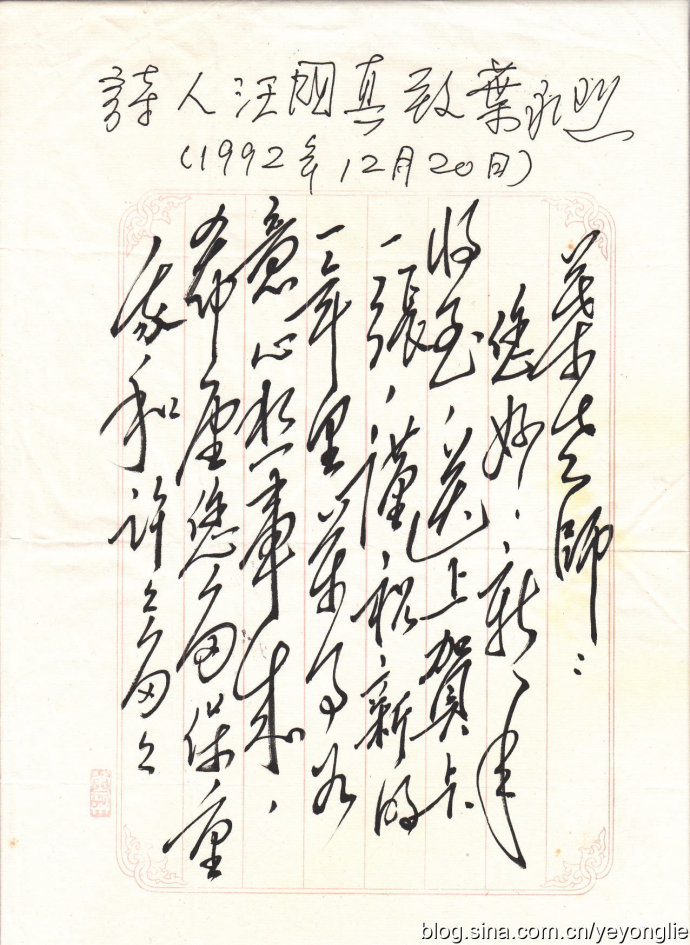 詩人汪國真致葉永烈
(1992年12月20日)
葉老師：
您好！新年
將至，送上賀卡
一張，謹祝新的
一年里萬事如
意心想事成，
希望您多保重
和許々多々
blog.sina.com.cn/yeyonglie